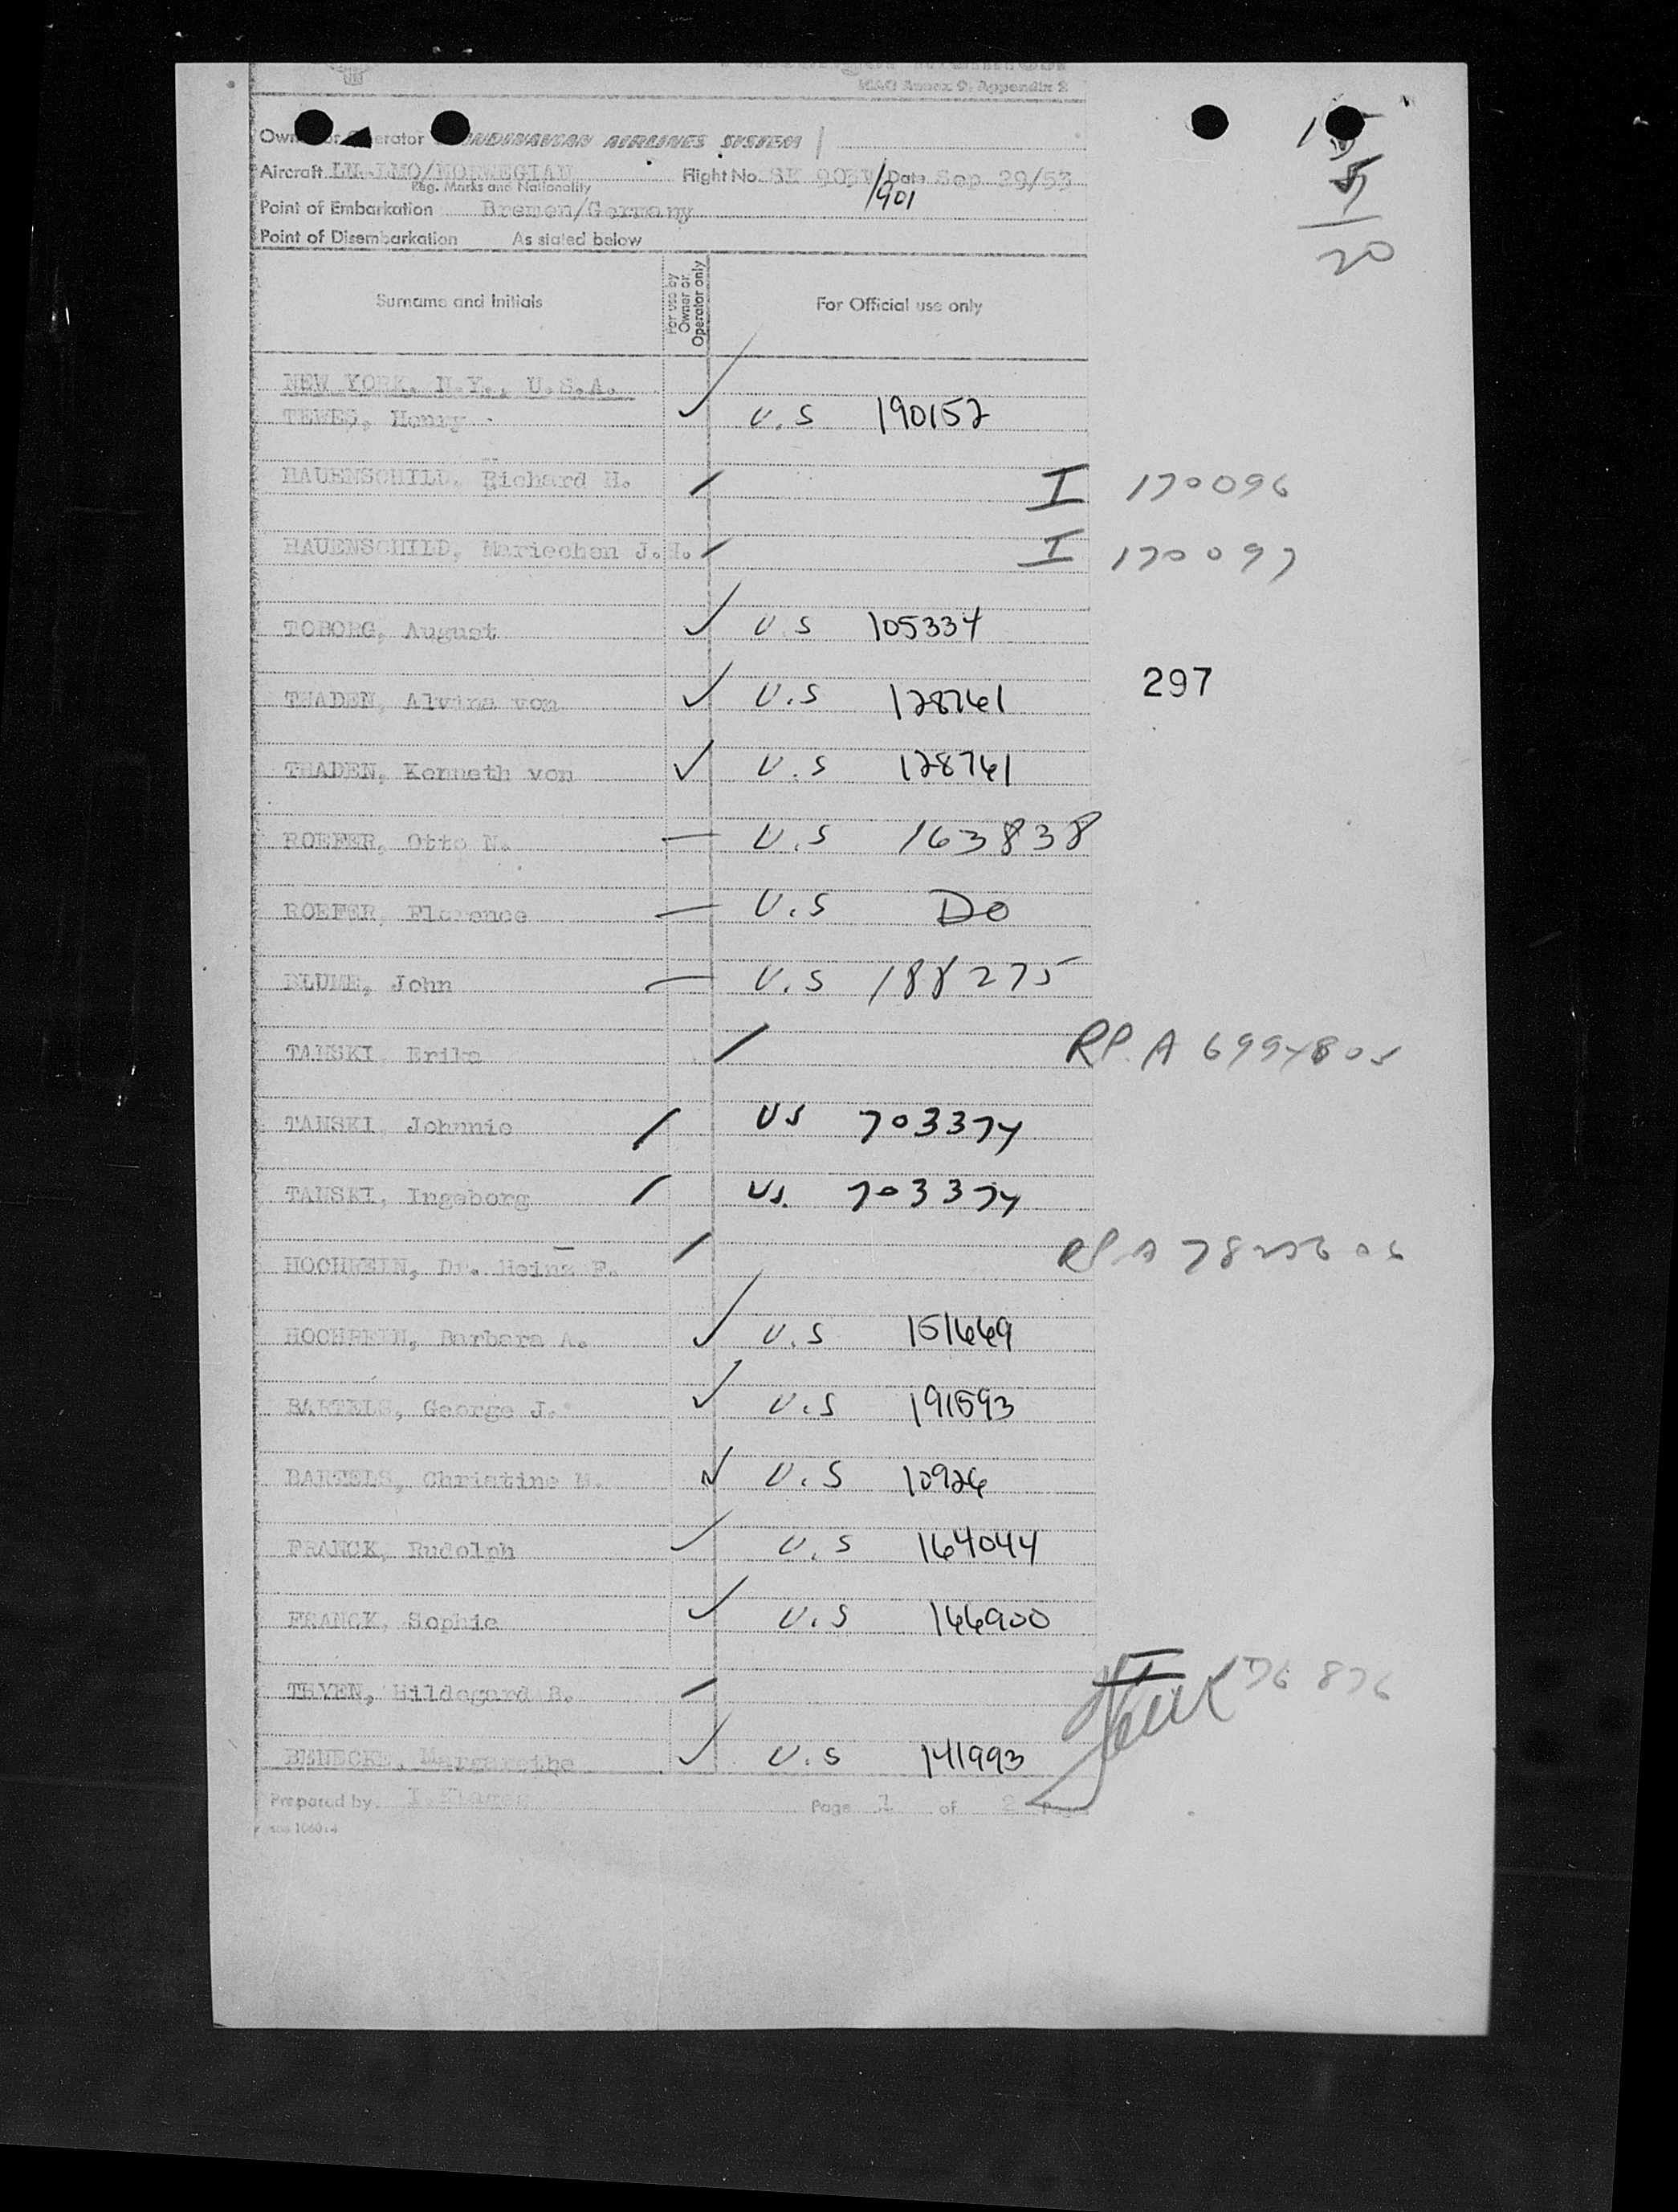 ICAO Annex 9, Appendix 2
Owner or Operator SCANDINAVIAN AIRLINES SYSTEM
Aircraft LN-LMO/NORWEGIAN Flight No. SK 903V Date Sep 29/53
Reg. Marks and Nationality
/901
15
5
20
Point of Embarkation Bremen/Germany
Point of Disembarkation As stated below
Surname and Initials For use by Owner or Operator only For Official use only
NEW YORK, N.Y., U.S.A.
TEWES, Henry U.S 190152
HAUENSCHILD, Richard H. I 170096
HAUENSCHILD, Mariechen J. I 170097
TOBORG, August U.S 105334
297
THADEN, Alvina von U.S 128761
THADEN, Kenneth von U.S 128761
ROEFER, Otto N. U.S 163838
ROEFER, Florence U.S Do
BLUME, John U.S 188275
TANSKI Erika RP. A 6994805
TANSKI, Johnnie US 703374
TANSKI, Ingeborg US. 703374
HOCHREIN, Dr. Heinz F. RP A
HOCHREIN, Barbara A. U.S 151669
BARTELS, George J. U.S 191593
BARTELS, Christine M. U.S 10926
FRANCK, Rudolph U.S 164044
FRANCK, Sophie U.S 166900
THYEN, Hildegard B. I 176 876
BENECKE, Margarethe U.S 141993
Prepared by Page 1 of 2 Pages